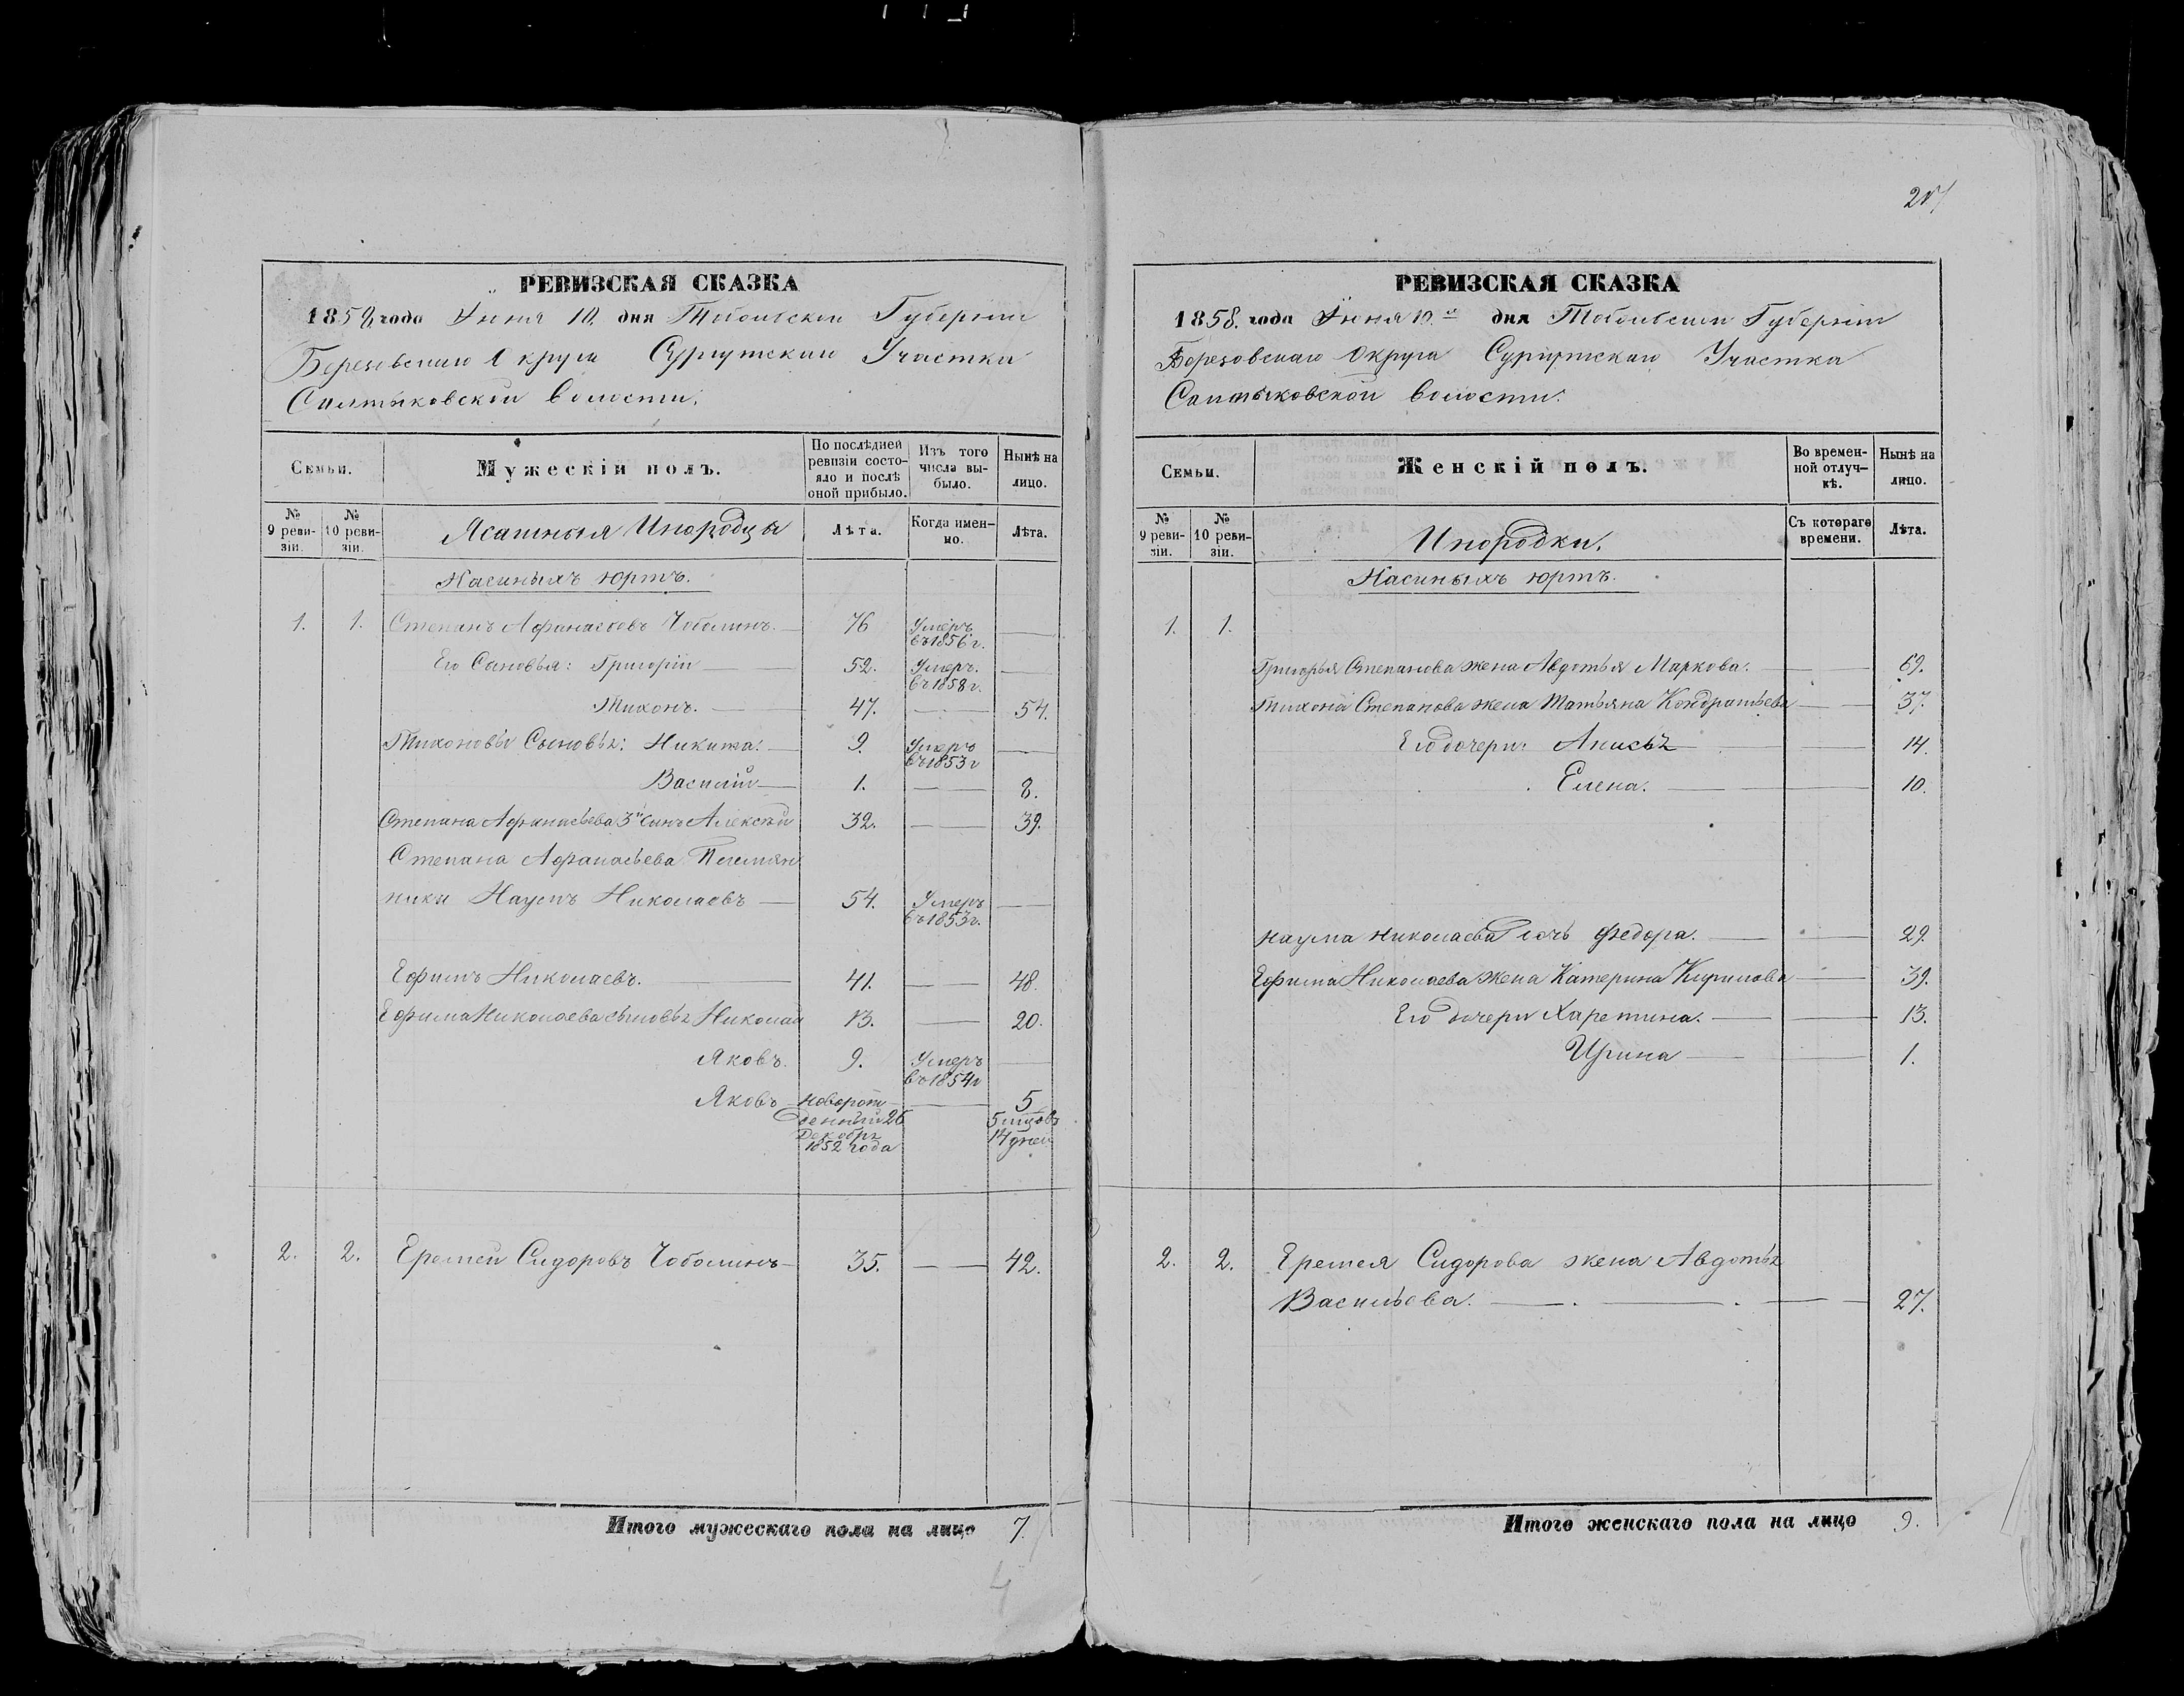 РЕВИЗСКАЯ СКАЗКА
1858 года Июня 10. дня Тобольской Губерніи
Березовскаго Округа Сургутскаго Участка
Салтыковской волости.
Семьи.
Мужескій полъ.
По послѣдней ревизіи состояло и послѣ оной прибыло.
Изъ того числа выбыло.
Нынѣ на лицо.
№ 9 ревизіи.
№ 10 ревизіи.
Ясашныя Инородцы
Лѣта.
Когда именно.
Лѣта.
Касиныхъ юртъ.
1. 1. Степанъ Афанасьевъ Чоболинъ. 76 Умеръ въ 1856 г.
Его Сыновья: Григорій 52. Умеръ. въ 1858 г.
Тихонъ. 47. 54.
Тихоновы Сыновьѣ: Никита. 9. Умеръ въ 1853 г
Василій 1. 8.
Степана Афанасьева 3й сынъ Алексѣй 32. 39.
Степана Афанасьева Племян
ники Наумъ Николаевъ 54. Умеръ въ 1853 г.
Ефимъ Николаевъ. 41. 48.
Ефима Николаева сыновьѣ Николай 13. 20.
Яковъ. 9. Умеръ въ 1854 г
Яковъ новорожденный 26 Декабрѣ 1852 года 5 5 мцовъ 14 дней
2. 2. Еремей Сидоровъ Чоболинъ 35. 42.
Итого мужескаго пола на лицо 7.
4
РЕВИЗСКАЯ СКАЗКА
1858. года Июня 10.го дня Тобольской Губерніи
Березовскаго Округа Сургутскаго Участка
Салтыковской волости.
Семьи.
Женскій полъ.
Во временной отлучкѣ.
Нынѣ на лицо.
№ 9 ревизіи.
№ 10 ревизіи.
Инородки.
Съ котораго времени.
Лѣта.
Касиныхъ юртъ.
1. 1.
Григорья Степанова жена Авдотья Маркова. 69.
Тихона Степанова жена Татьяна Кондратьева 37.
Его дочери: Анисьѣ 14.
Елена. 10.
Наума Николаева дочь Федора. 29.
Ефима Николаева жена Катерина Кирилова 39.
Его дочери Харетина. 13.
Ирина 1.
2. 2. Еремея Сидорова жена Авдотьѣ
Васильева. 27.
Итого женскаго пола на лицо 9.